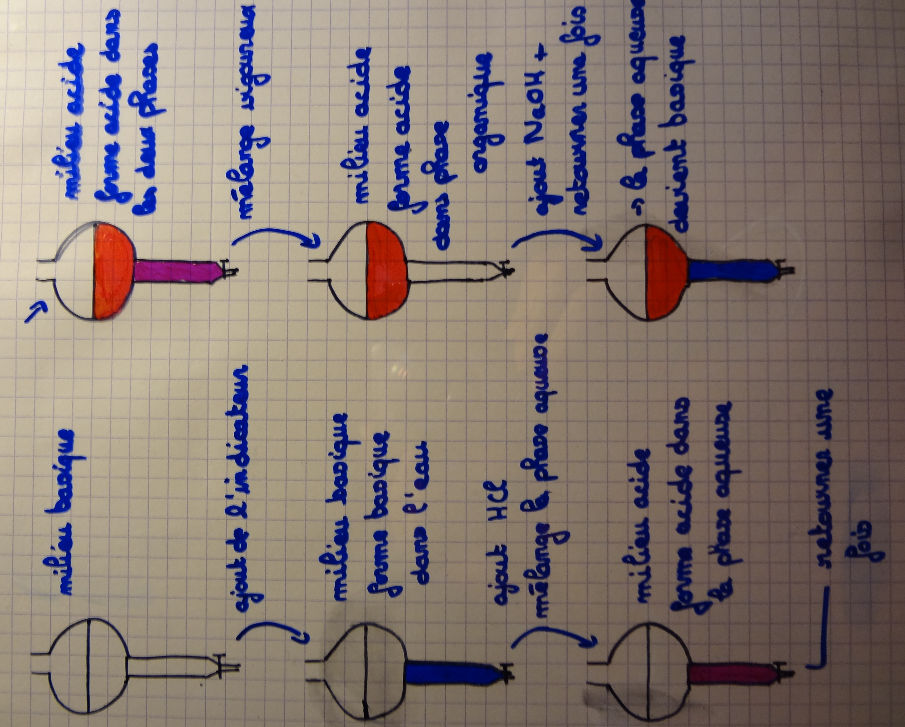 milieu basique
ajout de l'indicateur
milieu basique
forme basique
dans l'eau
ajout HCl
mélange la phase aqueuse
milieu acide
forme acide dans
la phase aqueuse
retourner une
fois
milieu acide
forme acide dans
les deux phases
mélange vigoureux
milieu acide
forme acide
dans phase
organique
ajout NaOH +
retourner une fois
→ la phase aqueuse
devient basique